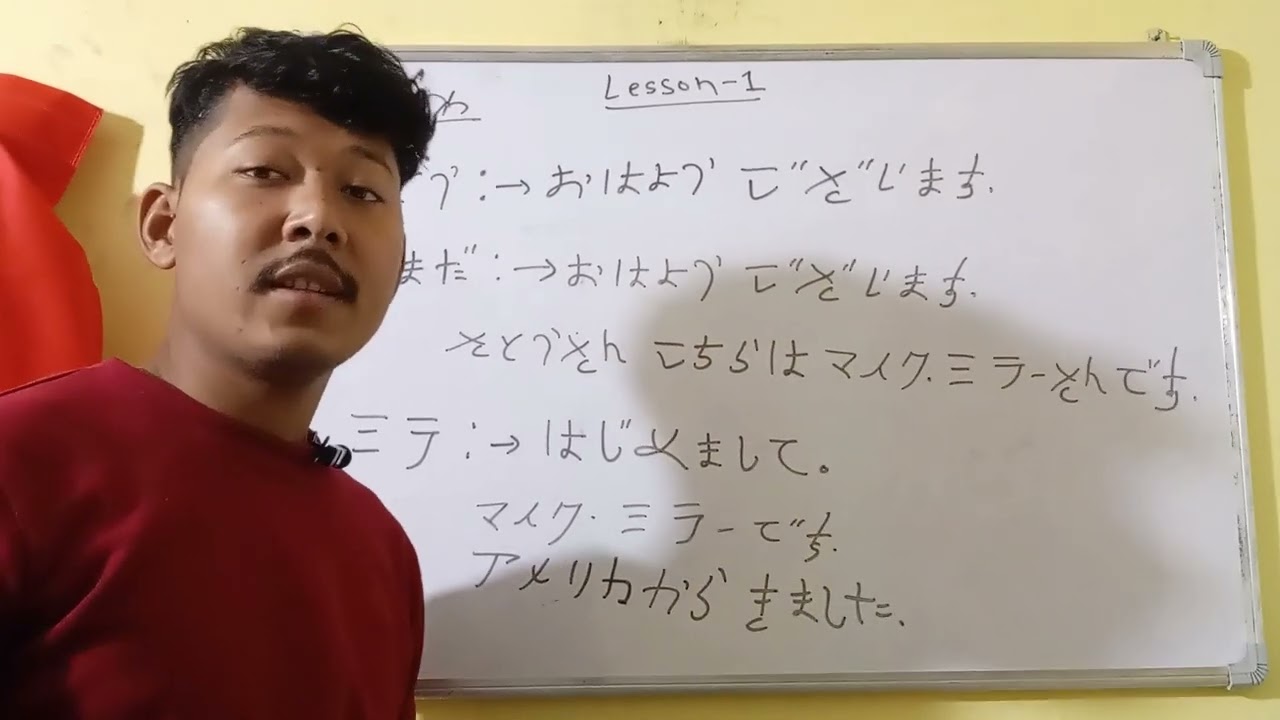 Lesson-1
:→ おはよう ございます.
まだ:→ おはよう ございます.
さとうさん こちらは マイク.ミラーさんです.
ミラ:→ はじめまして。
マイク.ミラーです.
アメリカから きました.